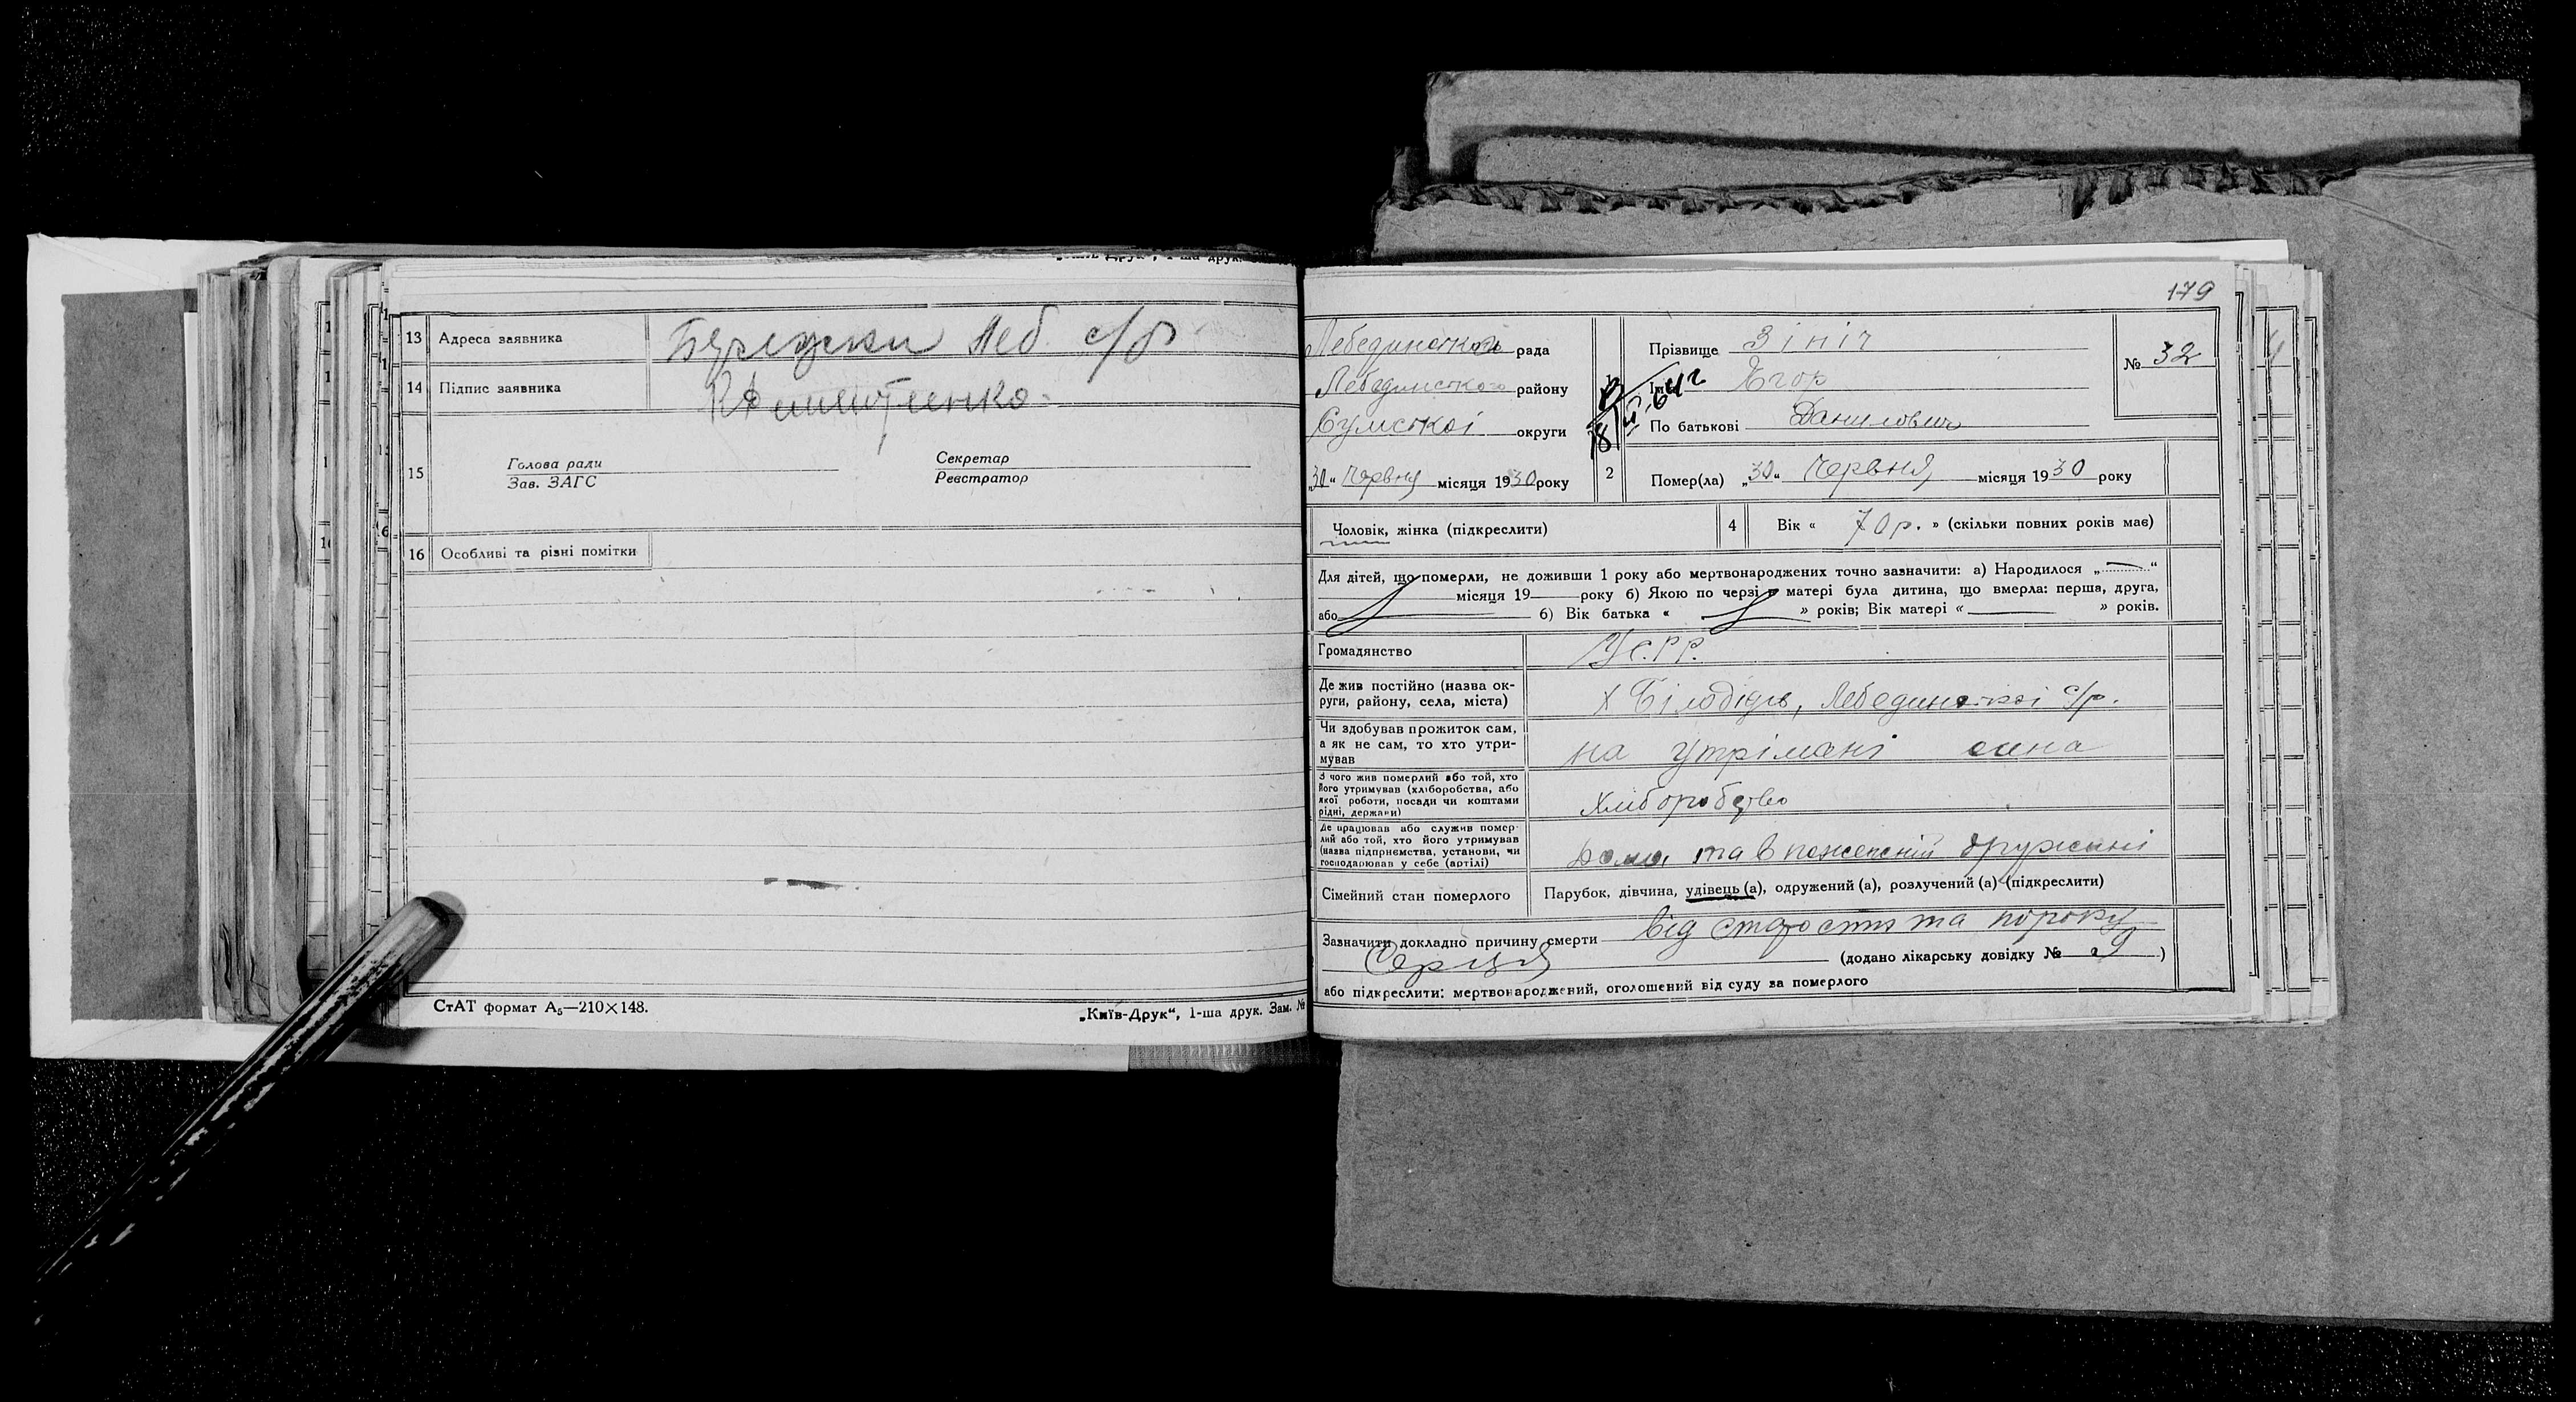 „Київ-Друк", 1-ша друк.
13 Адреса заявника Бережки Леб. с/р
14 Підпис заявника
15 Голова ради Секретар
Зав. ЗАГС Реєстратор
16 Особливі та різні помітки
СтАТ формат А₅—210×148.
„Київ-Друк", 1-ша друк. Зам. №
179
Лебединської рада
Лебединського району
Сумської округи
„30" Червня місяця 1930 року
Прізвище Зініч
Ім'я Єгор
По батькові Данилович
№ 32
2 Помер(ла) „30" Червня місяця 1930 року
Чоловік, жінка (підкреслити)
4 Вік « 70 р. » (скільки повних років має)
Для дітей, що померли, не доживши 1 року або мертвонароджених точно зазначити: а) Народилося „—"
місяця 19 року б) Якою по черзі у матері була дитина, що вмерла: перша, друга,
або б) Вік батька « » років; Вік матері « » років.
Громадянство У.С.Р.Р.
Де жив постійно (назва ок-
руги, району, села, міста) х Білобідь, Лебединської с/р.
Чи здобував прожиток сам,
а як не сам, то хто утри-
мував на утрімані сина
З чого жив померлий або той, хто
його утримував (хліборобства, або
якої роботи, посади чи коштами
рідні, держави) хліборобство
Де працював або служив помер-
лий або той, хто його утримував
(назва підприємства, установи, чи
господарював у себе (артілі) дома та в пожежній дружині
Сімейний стан померлого Парубок, дівчина, удівець (а), одружений (а), розлучений (а) (підкреслити)
Зазначити докладно причину смерти від старости та пороку
Серця (додано лікарську довідку № 29)
або підкреслити: мертвонароджений, оголошений від суду за померлого